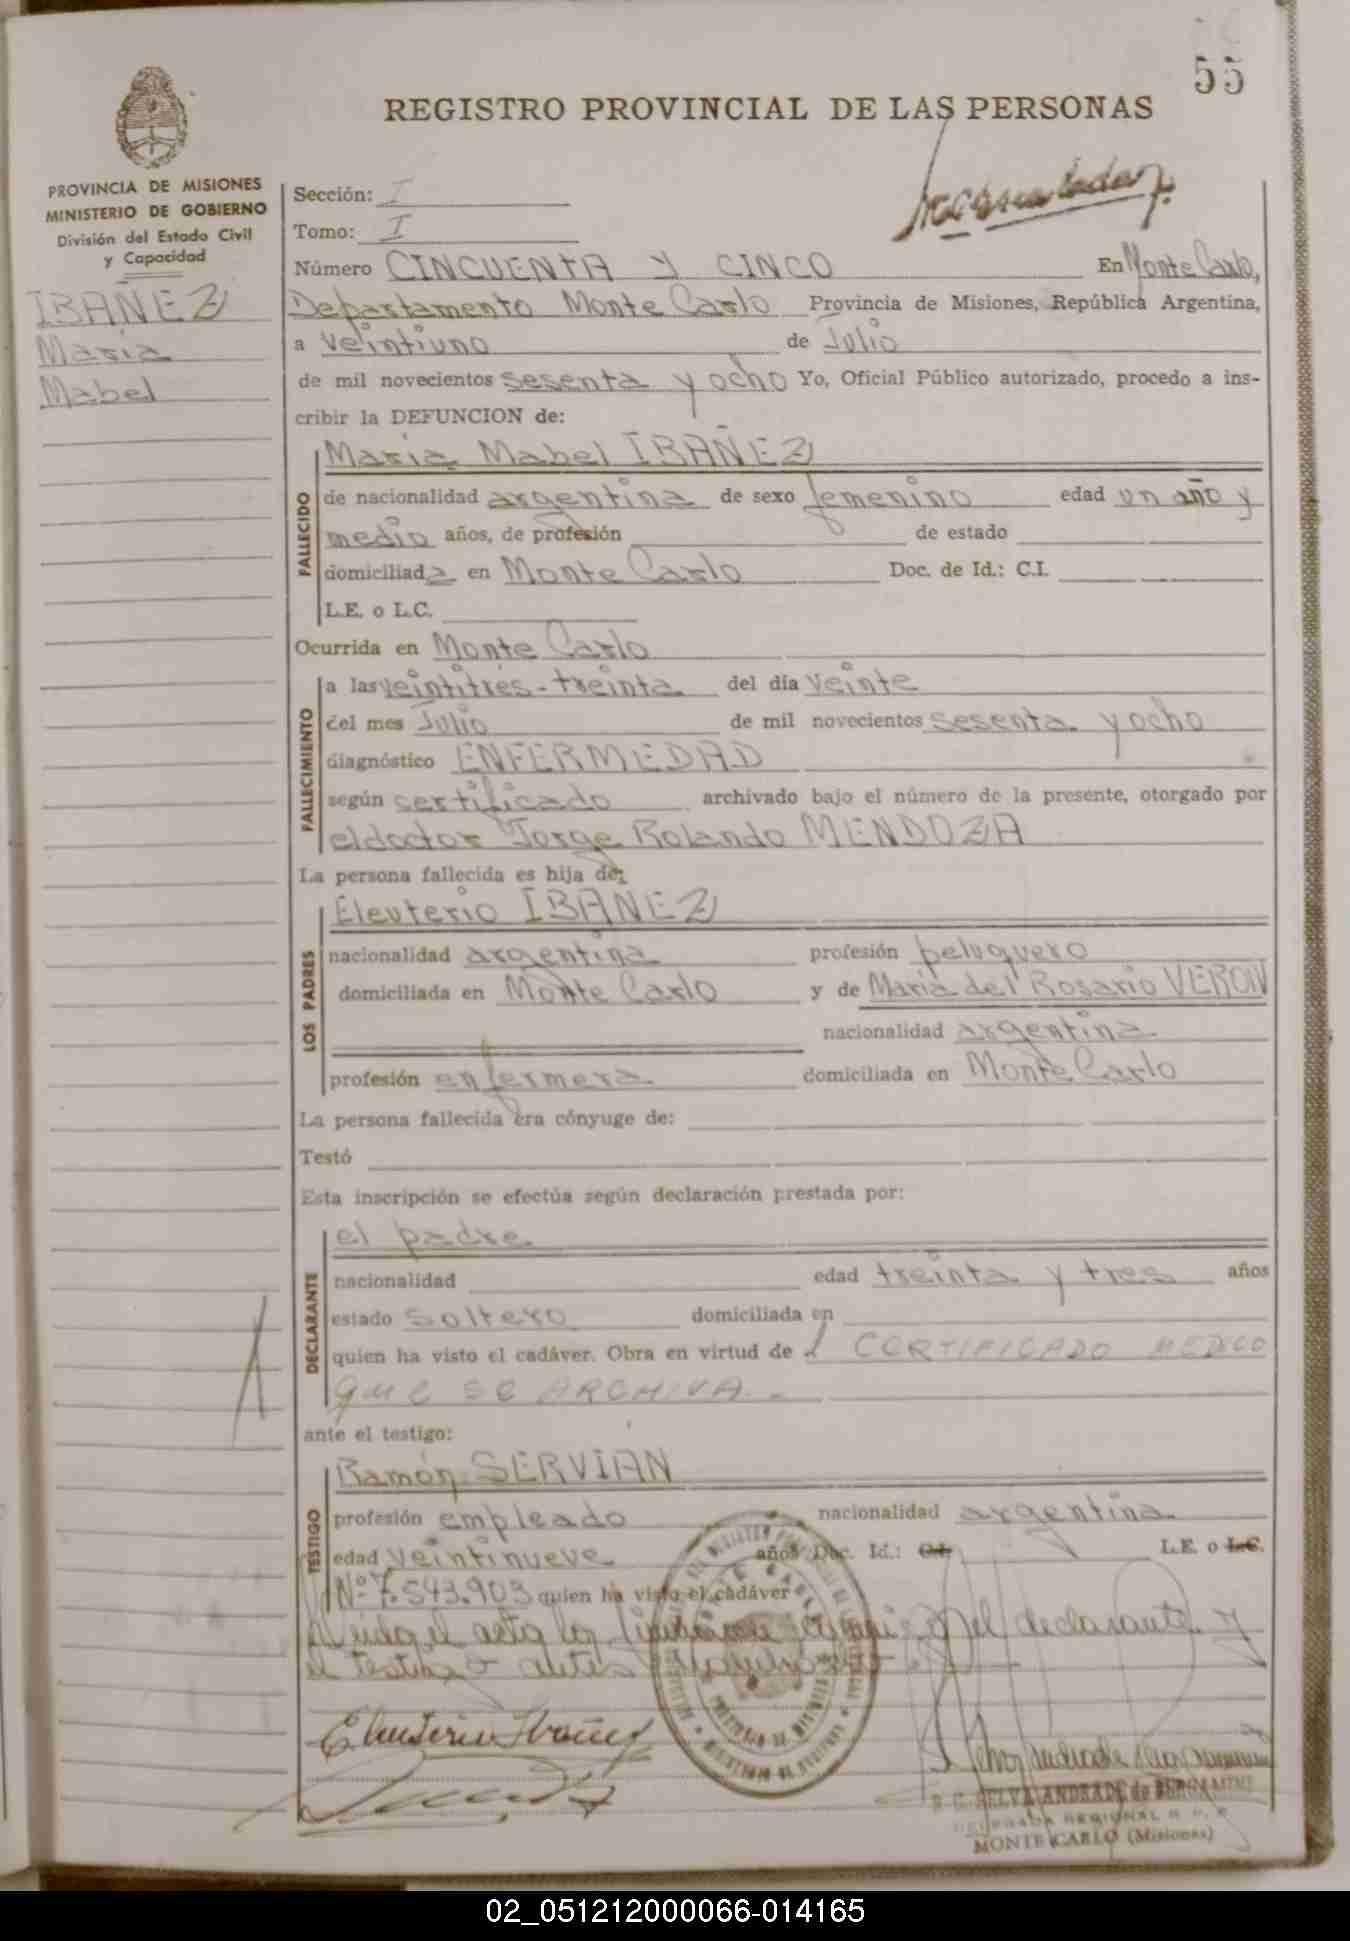 55
REGISTRO PROVINCIAL DE LAS PERSONAS
PROVINCIA DE MISIONES
MINISTERIO DE GOBIERNO
División del Estado Civil
y Capacidad
IBAÑEZ
María
Mabel
Sección: I
Tomo: I
Número CINCUENTA Y CINCO En Monte Carlo,
Departamento Monte Carlo Provincia de Misiones, República Argentina,
a veintiuno de Julio
de mil novecientos sesenta y ocho Yo, Oficial Público autorizado, procedo a ins-
cribir la DEFUNCION de:
FALLECIDO
María Mabel IBAÑEZ
de nacionalidad argentina de sexo femenino edad un año y
medio años, de profesión de estado
domiciliada en Monte Carlo Doc. de Id.: C.I.
L.E. o L.C.
Ocurrida en Monte Carlo
FALLECIMIENTO
a las veintitrés-treinta del día veinte
del mes Julio de mil novecientos sesenta y ocho
diagnóstico ENFERMEDAD
según certificado archivado bajo el número de la presente, otorgado por
el doctor Jorge Rolando MENDOZA
La persona fallecida es hija de:
LOS PADRES
Eleuterio IBAÑEZ
nacionalidad argentina profesión peluquero
domiciliada en Monte Carlo y de María del Rosario VERON
nacionalidad argentina
profesión enfermera domiciliada en Monte Carlo
La persona fallecida era cónyuge de:
Testó
Esta inscripción se efectúa según declaración prestada por:
DECLARANTE
el padre
nacionalidad edad treinta y tres años
estado soltero domiciliada en
quien ha visto el cadáver. Obra en virtud de l CERTIFICADO MEDICO
QUE SE ARCHIVA.-
ante el testigo:
TESTIGO
Ramón SERVIAN
profesión empleado nacionalidad argentina
edad veintinueve años Doc. Id.: C.I. L.E. o L.C.
Nº 7.543.903 quien ha visto el cadáver
el acta el declarante y
el testigo antes
Eleuterio Ibañez
SELVA ANDRADE de
DELEGADA REGIONAL R. P. P.
MONTE CARLO (Misiones)
02_051212000066-014165